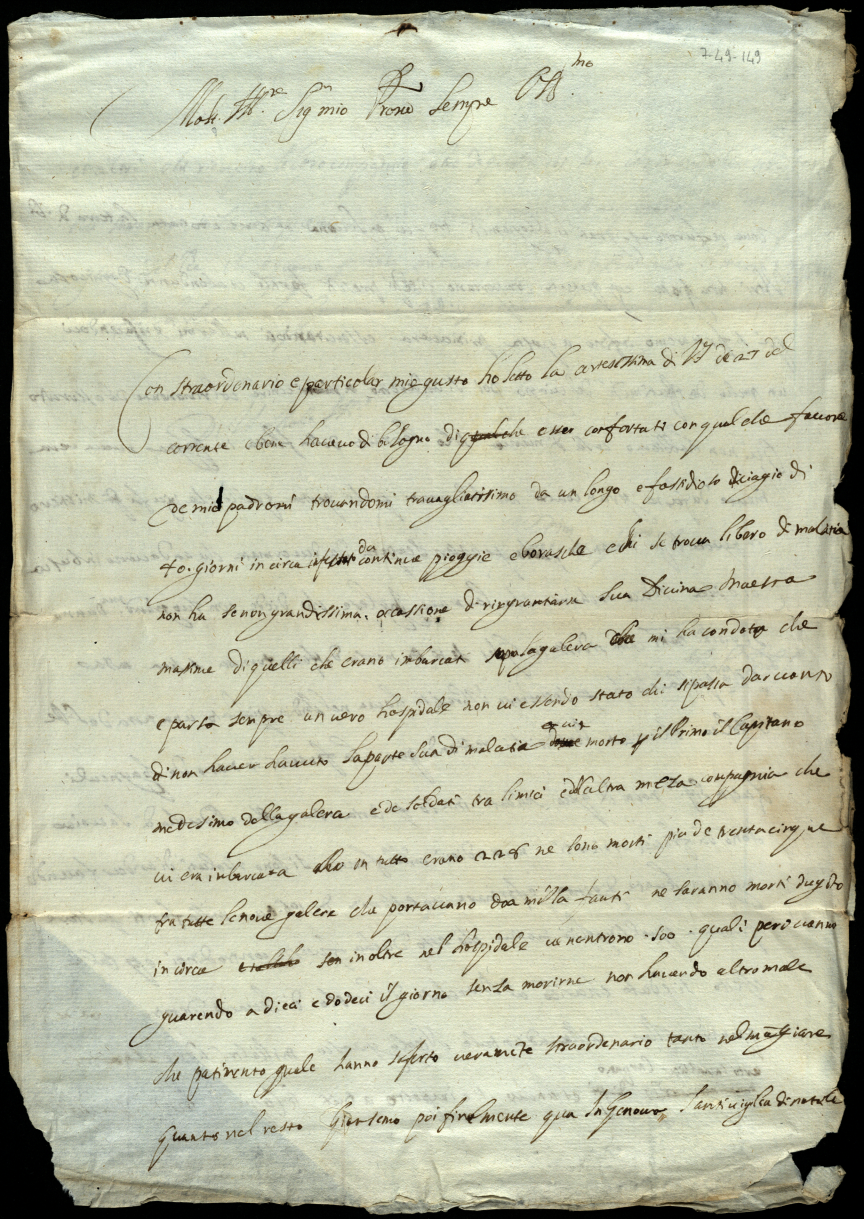 7-49-149
Molt. Ill.re Sig.r mio Prone sempre Oss.mo
Con straordenario e particolar mio gusto ho letto la cortesissima di V S de 27 del
corrente e bene havevo di bisogno di qualche esser confortato con qualche favore
de miei padroni trovandomi travagliatissimo da un longo e fastidioso disagio di
40. giorni in circa da continue pioggie e borasche e chi si trova libero di malatia
non ha se non grandissima occassione di ringrantiarne Sua Divina Maesta
massime di quelli che erano imbarcati sopo la galera che mi ha condoto che
e parso sempre un vero hospidale non vi essendo stato chi si possa dar vanto
di non haver havuto la parte sua di malatia e vi e morto il Primo il Capitano
medesimo della galera e de soldati tra li miei e dell altra meza compagnia che
vi era imbarcata che in tutto erano 228 ne sono morti piu de trentacinque
fra tutte le nove galere che portavano doa milla fanti ne saranno morti
in circa son inoltre nel hospidale ve n entrono . 500 . quali pero vanno
guarendo a dieci e dodeci il giorno senza morirne non havendo altro male
che patimento quale hanno soferto veramente straordenario tanto nel magiare
quanto nel resto Gionsemo poi finalmente qua In Genova l antivigilia di natale